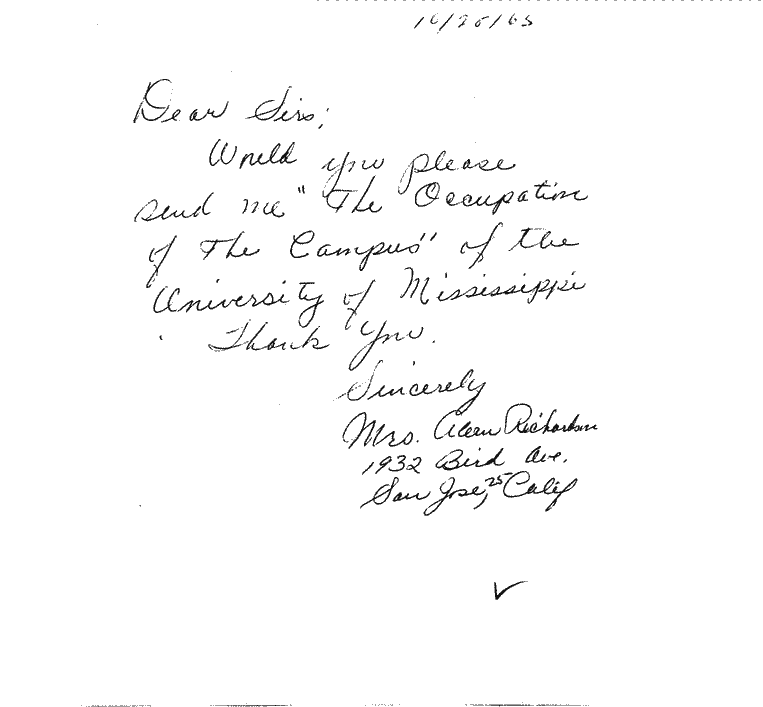 Dear Sirs;
Would you please
send me "The Occupation
of The Campus" of the
University of Mississippi
Thank You.
Sincerely
Mrs. Richardson
1932 Bird Ave.
San Jose, 25 Calif